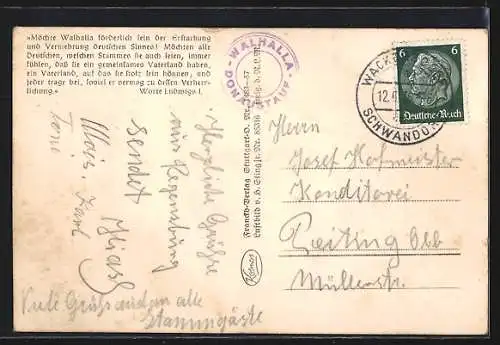 »Möchte Walhalla förderlich sein der Erstarkung
und Vermehrung deutschen Sinnes! Möchten alle
Deutschen, welchen Stammes sie auch seien, immer
fühlen, daß sie ein gemeinsames Vaterland haben,
ein Vaterland, auf das sie stolz sein können; und
jeder trage bei, soviel er vermag zu dessen Verherr-
lichung.« Worte Ludwigs I.
WALHALLA
DONAUSTAUF
Franckh-Verlag Stuttgart-O.
Luftbild v. H.
Kosmos
WACK
12.
SCHWANDORF
6 6
Deutsches Reich
Herzliche Grüße
aus Regensburg
sendet
Hias
Mais. Karl
Toni
Viele Grüße an alle
Stammgäste
Herrn
Josef Hofmeister
Konditorei
Peiting Obb
Müllerstr.